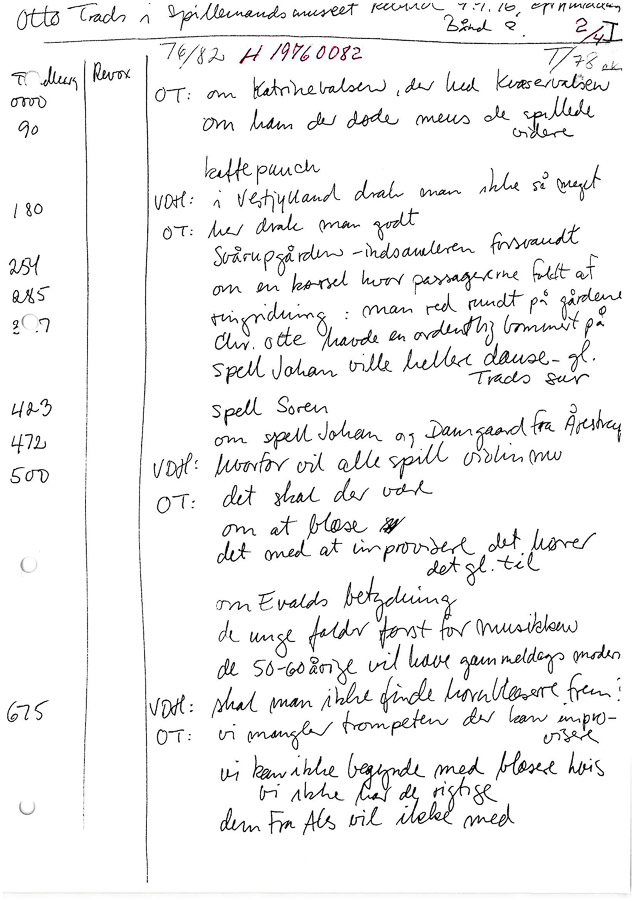 Otto Trads i Spillemandsmuseet Rebild 4.9.76,
Bånd 2. 2/4 I
76/82 H 19760082 T/78
Revox
0000 OT: om Katrinevalsen, der hed Kvaservalsen
90 om ham der døde mens de spillede
videre
kaffepunch
180 VDH: i Vestjylland drak man ikke så meget
OT: her drak man godt
Svårupgården - indsamleren forsvandt
254 om en kørsel hvor passagererne faldt af
285 ringridning: man red rundt på gårdene
Chr. Otte havde en ordentlig bommert på
spell Johan ville hellere danse - gl.
Trads sur
423 spell Søren
472 om spell Johan og Damgaard fra Årestrup
500 VDH: hvorfor vil alle spill violin nu
OT: det skal der være
om at blæse
det med at improvisere det hører
det gl. til
om Evalds betydning
de unge falder først for musikken
de 50-60årige vil have gammeldags modern
675 VDH: skal man ikke finde hornblæsere frem?
OT: vi mangler trompeten der kan impro-
visere
vi kan ikke begynde med blæsere hvis
vi ikke har de rigtige
dem Fra Als vil ikke med